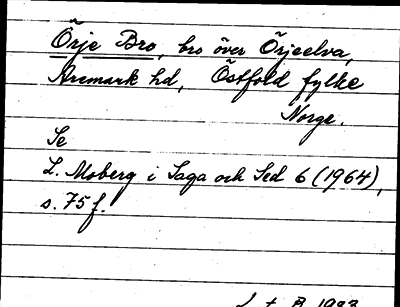 Örje Bro, bro över Örjeelva,
Aremark hd, Östfold fylke
Norge.
Se
L. Moberg i Saga och Sed 6 (1964),
s. 75 f.
1983